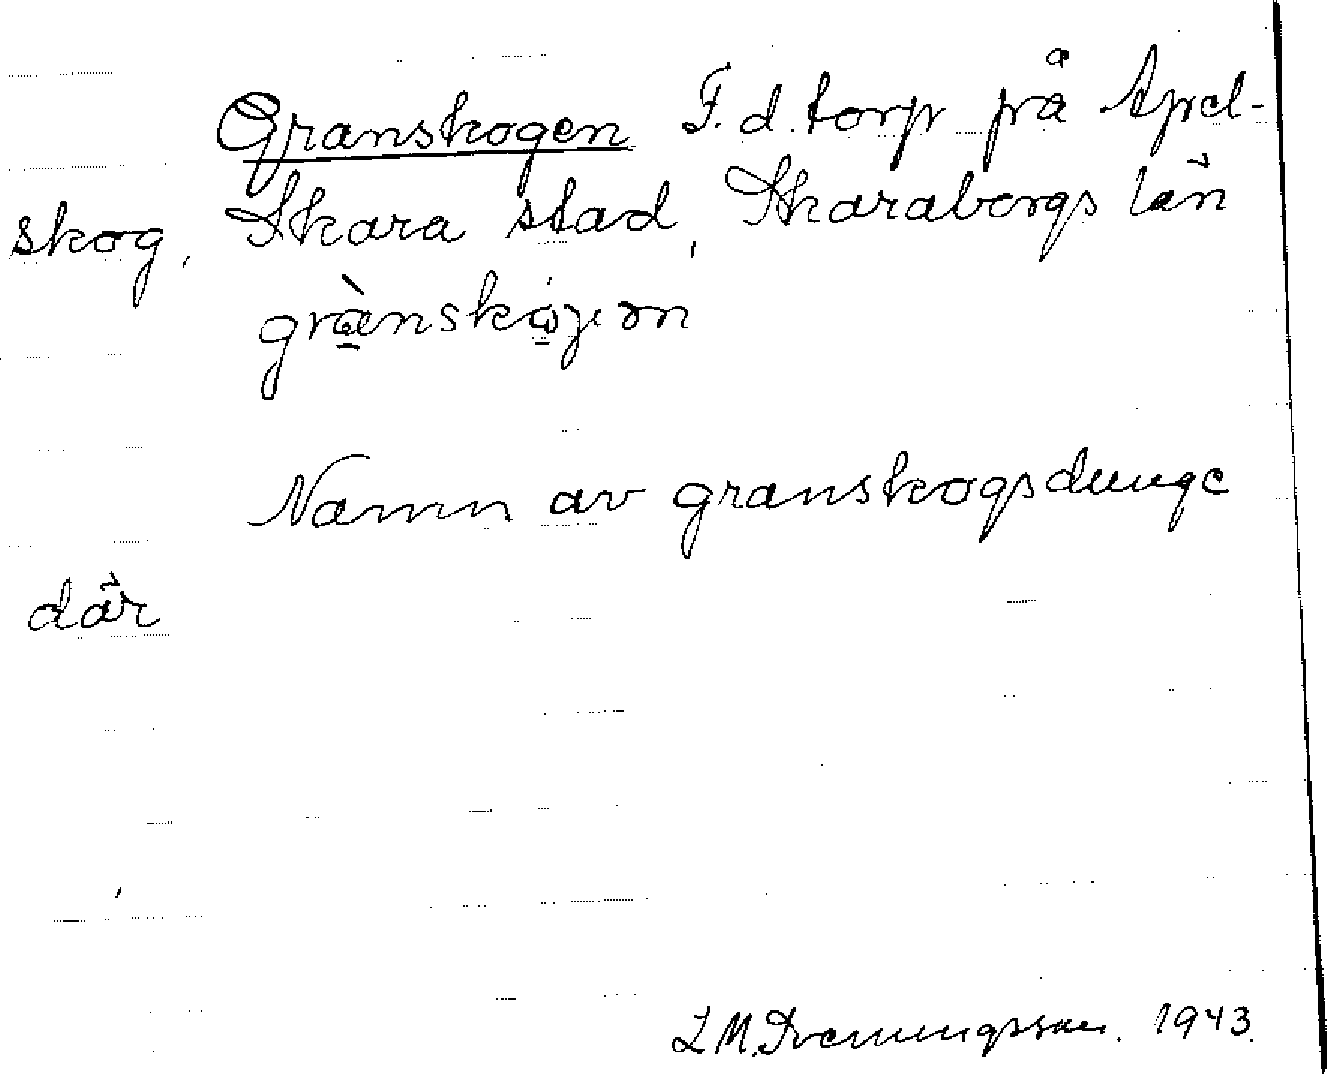 Granskogen F. d. torp på Apel-
skog, Skara stad, Skaraborgs län
grànskógen
Namn av granskogsdunge
där
1943.